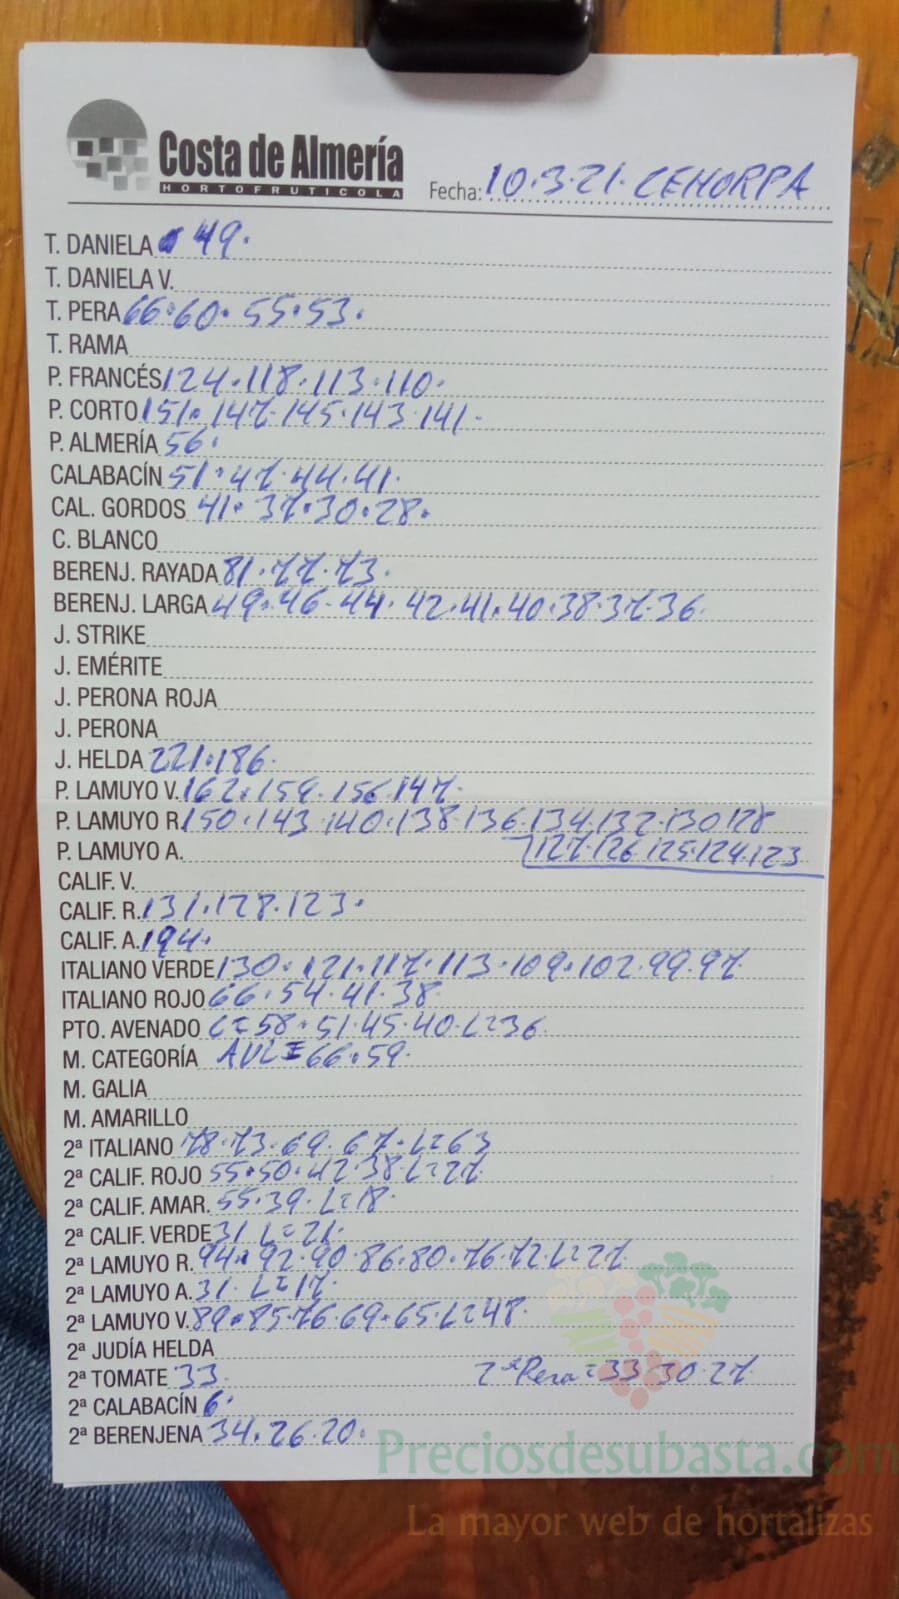 Costa de Almería
HORTOFRUTICOLA
Fecha: 10.3.21. CEHORPA
T. DANIELA 49.
T. DANIELA V.
T. PERA 66.60. 55.53.
T. RAMA
P. FRANCÉS 124.118.113.110.
P. CORTO 151.147.145.143.141.
P. ALMERÍA 56.
CALABACÍN 51.47.44.41.
CAL. GORDOS 41.37.30.28.
C. BLANCO
BERENJ. RAYADA 81.77.73.
BERENJ. LARGA 49.46.44.42.41.40.38.37.36.
J. STRIKE
J. EMÉRITE
J. PERONA ROJA
J. PERONA
J. HELDA 221.186.
P. LAMUYO V. 162.159.156.147.
P. LAMUYO R. 150.143.140.138.136.134.132.130.128
P. LAMUYO A. 127.126.125.124.123
CALIF. V.
CALIF. R. 131.128.123.
CALIF. A. 194.
ITALIANO VERDE 130.121.117.113.109.102.99.97
ITALIANO ROJO 66.54.41.38
PTO. AVENADO L=58.51.45.40.L=36
M. CATEGORÍA AVL=66.59.
M. GALIA
M. AMARILLO
2ª ITALIANO 78.73.69.67.L=63
2ª CALIF. ROJO 55.50.42.38.L=27
2ª CALIF. AMAR. 55.39.L=18.
2ª CALIF. VERDE 31 L=21.
2ª LAMUYO R. 94.92.90.86.80.76.72.L=27
2ª LAMUYO A. 31. L=17.
2ª LAMUYO V. 89.85.76.69.65.L=48.
2ª JUDÍA HELDA
2ª TOMATE 33. 2ª Pera=33.30.27.
2ª CALABACÍN 6.
2ª BERENJENA 34.26.20.
Preciosdesubasta.com
La mayor web de hortalizas